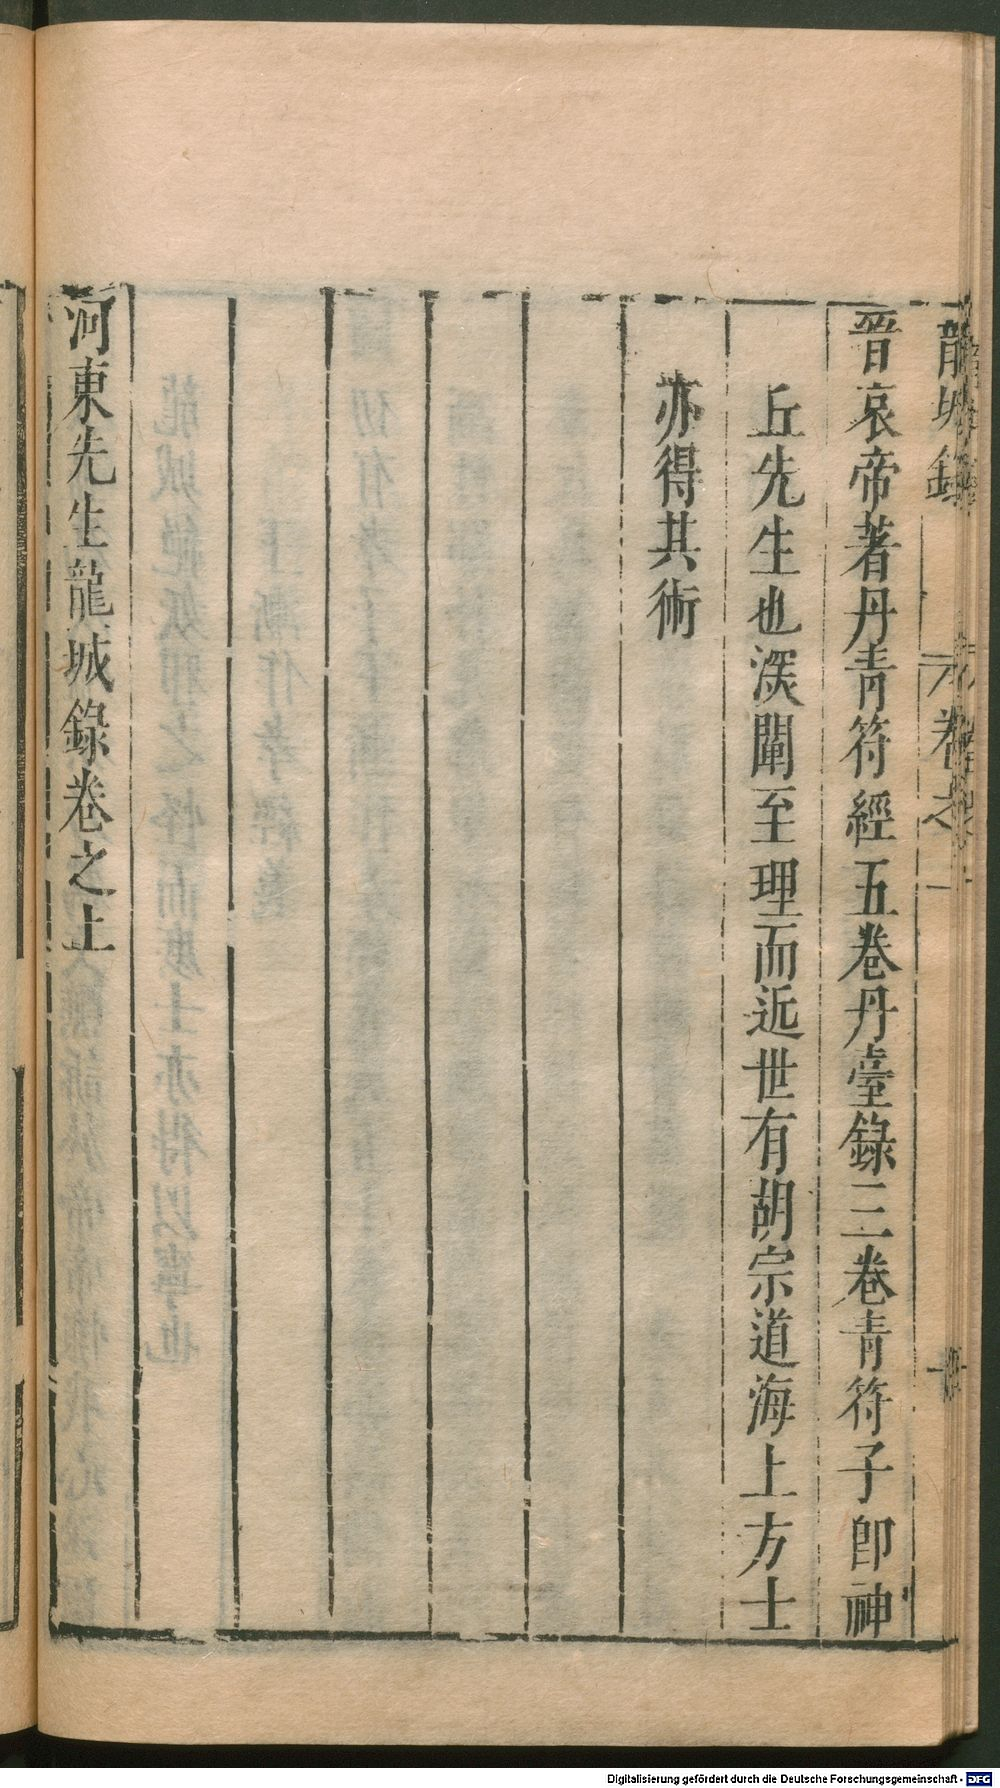 龍城錄 卷之
晉哀帝著丹青符經五卷丹臺錄三卷青符子卽神
丘先生也深闡至理而近世有胡宗道海上方士
亦得其術
河東先生龍城錄卷之上
Digitalisierung gefördert durch die Deutsche Forschungsgemeinschaft - DFG